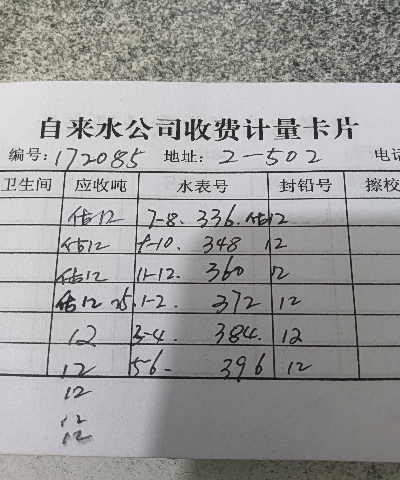 自来水公司收费计量卡片
编号: 172085 地址: 2-502 电话
卫生间 应收吨 水表号 封铅号 擦校
估12 7-8. 336. 估12
估12 9-10. 348 12
估12 11-12. 360 12
估12 25. 1-2. 372 12
12 3-4. 384. 12
12 5-6- 396 12
12
12
12